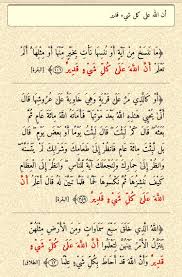 أن الله على كل شيء قدير
﴿مَا نَنسَخْ مِنْ آيَةٍ أَوْ نُنسِهَا نَأْتِ بِخَيْرٍ مِّنْهَا أَوْ مِثْلِهَا أَلَمْ
تَعْلَمْ أَنَّ اللَّهَ عَلَىٰ كُلِّ شَيْءٍ قَدِيرٌ ﴿١٠٦﴾ [البقرة]
﴿أَوْ كَالَّذِي مَرَّ عَلَىٰ قَرْيَةٍ وَهِيَ خَاوِيَةٌ عَلَىٰ عُرُوشِهَا قَالَ
أَنَّىٰ يُحْيِي هَٰذِهِ اللَّهُ بَعْدَ مَوْتِهَا فَأَمَاتَهُ اللَّهُ مِائَةَ عَامٍ ثُمَّ
بَعَثَهُ قَالَ كَمْ لَبِثْتَ قَالَ لَبِثْتُ يَوْمًا أَوْ بَعْضَ يَوْمٍ قَالَ
بَل لَّبِثْتَ مِائَةَ عَامٍ فَانظُرْ إِلَىٰ طَعَامِكَ وَشَرَابِكَ لَمْ يَتَسَنَّهْ
وَانظُرْ إِلَىٰ حِمَارِكَ وَلِنَجْعَلَكَ آيَةً لِّلنَّاسِ وَانظُرْ إِلَى الْعِظَامِ
كَيْفَ نُنشِزُهَا ثُمَّ نَكْسُوهَا لَحْمًا فَلَمَّا تَبَيَّنَ لَهُ قَالَ أَعْلَمُ أَنَّ
اللَّهَ عَلَىٰ كُلِّ شَيْءٍ قَدِيرٌ ﴿٢٥٩﴾ [البقرة]
﴿اللَّهُ الَّذِي خَلَقَ سَبْعَ سَمَاوَاتٍ وَمِنَ الْأَرْضِ مِثْلَهُنَّ
يَتَنَزَّلُ الْأَمْرُ بَيْنَهُنَّ لِتَعْلَمُوا أَنَّ اللَّهَ عَلَىٰ كُلِّ شَيْءٍ قَدِيرٌ
وَأَنَّ اللَّهَ قَدْ أَحَاطَ بِكُلِّ شَيْءٍ عِلْمًا ﴿١٢﴾ [الطلاق]